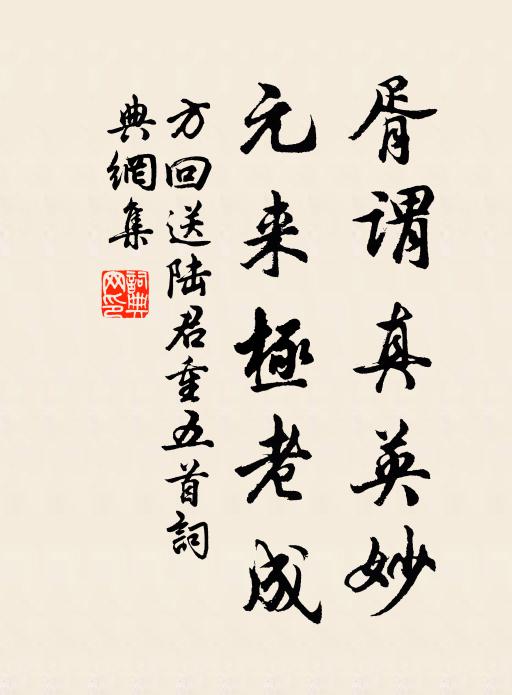 胥謂真英妙
元来極老成
方回送陆君重五首詞
典網集
詞典网印